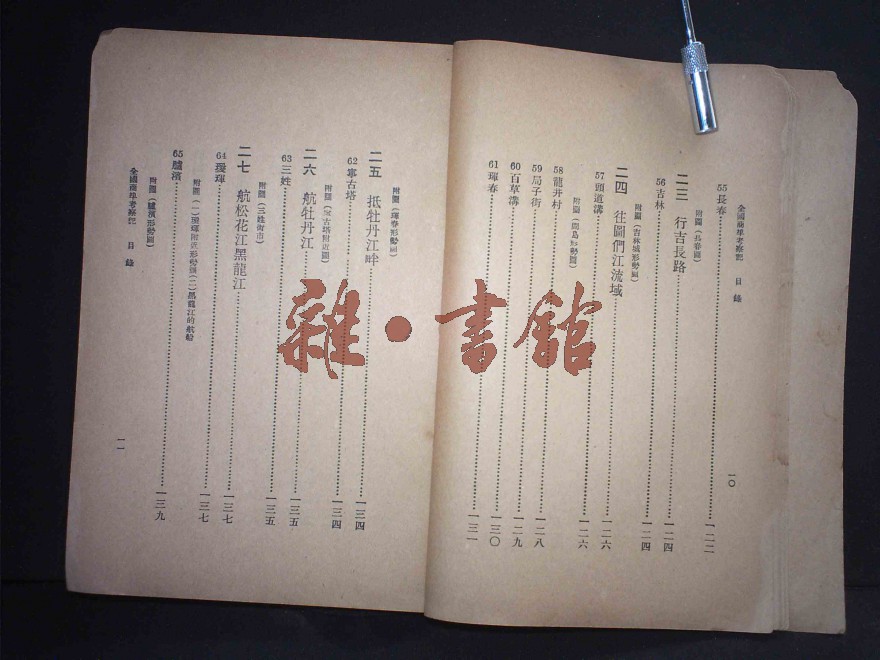 全國商埠考察記 目錄
55長春…………一二二
附圖(長春圖)
二三 行吉長路…………一二四
56吉林…………一二四
附圖(吉林城形勢圖)
二四 往圖們江流域…………一二六
57頭道溝…………一二六
附圖(間島形勢圖)
58龍井村…………一二八
59局子街…………一二八
60百草溝…………一二九
61琿春…………一三〇
一三一
一〇
附圖(琿春形勢圖)
二五 抵牡丹江畔…………一三四
62寧古塔…………一三四
附圖(寧古塔附近圖)
二六 航牡丹江…………一三五
63三姓…………一三五
附圖(三姓街市)
二七 航松花江黑龍江…………一三七
64璦琿…………一三七
附圖(一)璦琿附近形勢圖(二)黑龍江的航船
65臚濱…………一三九
附圖(臚濱形勢圖)
全國商埠考察記 目錄
一一
雜·書館